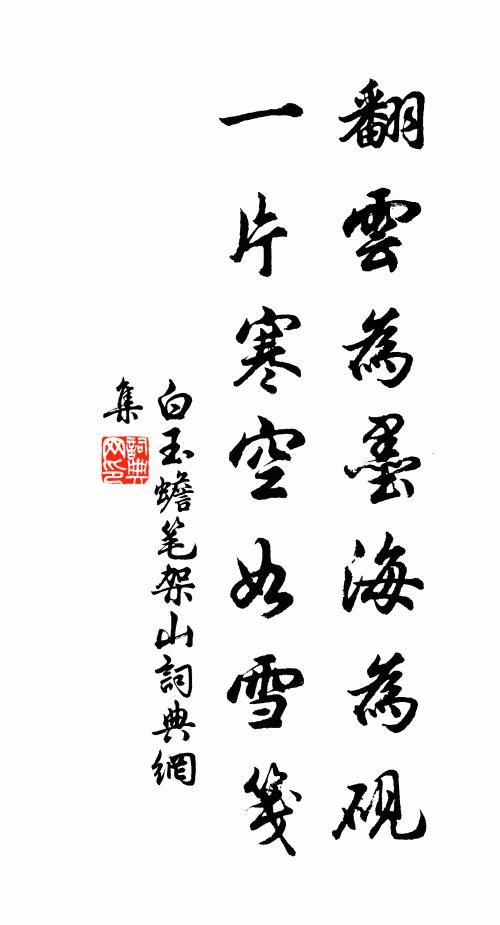 翻雲為墨海為硯
一片寒空如雪箋
白玉蟾笔架山詞典網
集
詞典网印